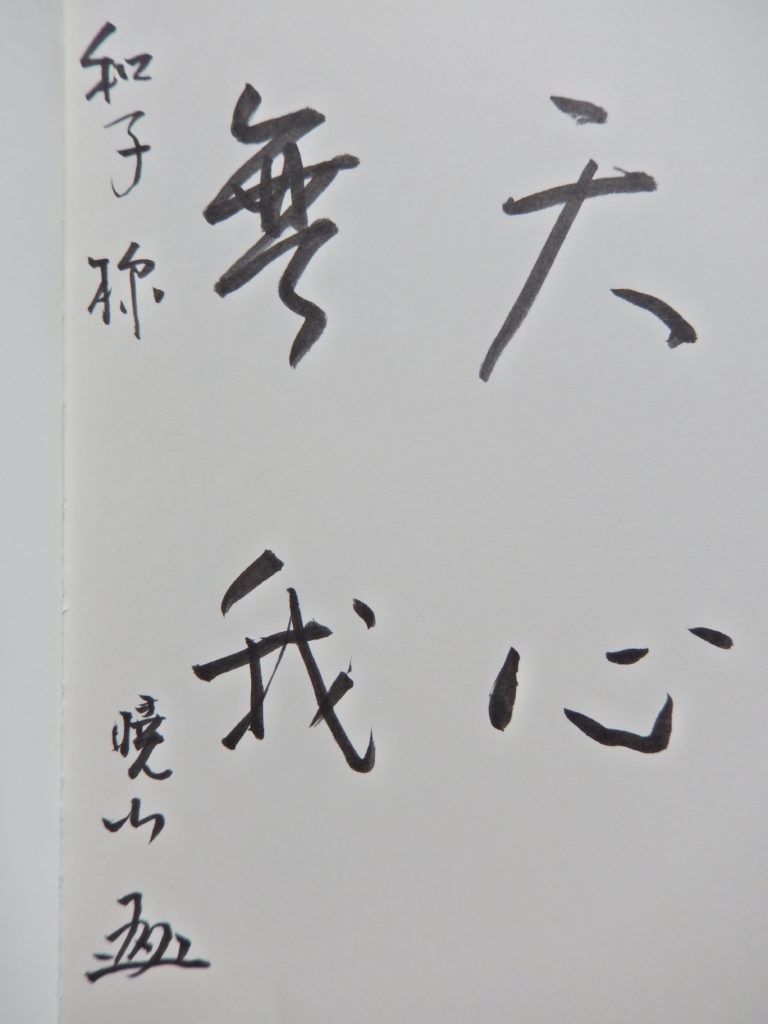 天心
無我
和子 様
曉山